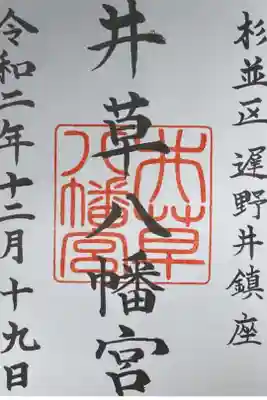 杉並区 遅野井鎮座
井草八幡宮
井草八幡宮
令和二年十二月十九日